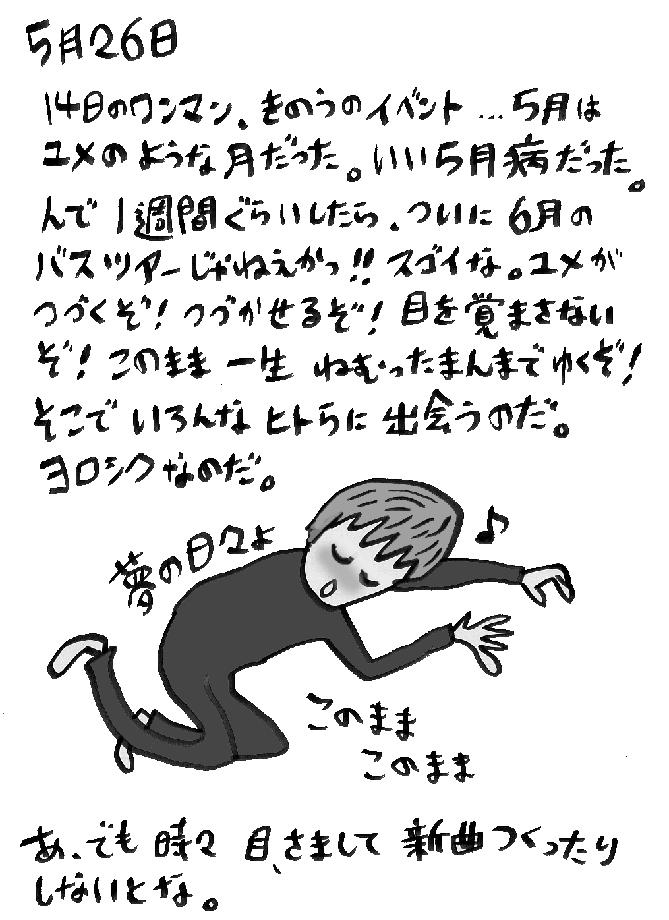 5月26日
14日のワンマン、きのうのイベント…5月は
ユメのような月だった。いい5月病だった。
んで1週間ぐらいしたら、ついに6月の
バスツアーじゃねえかっ!!スゴイな。ユメが
つづくぞ!つづかせるぞ!目を覚まさない
ぞ!このまま一生ねむったまんまでゆくぞ!
そこでいろんなヒトらに出会うのだ。
ヨロシクなのだ。
♪
夢の日々よ
このまま
このまま
あ、でも時々目、さまして新曲つくったり
しないとな。